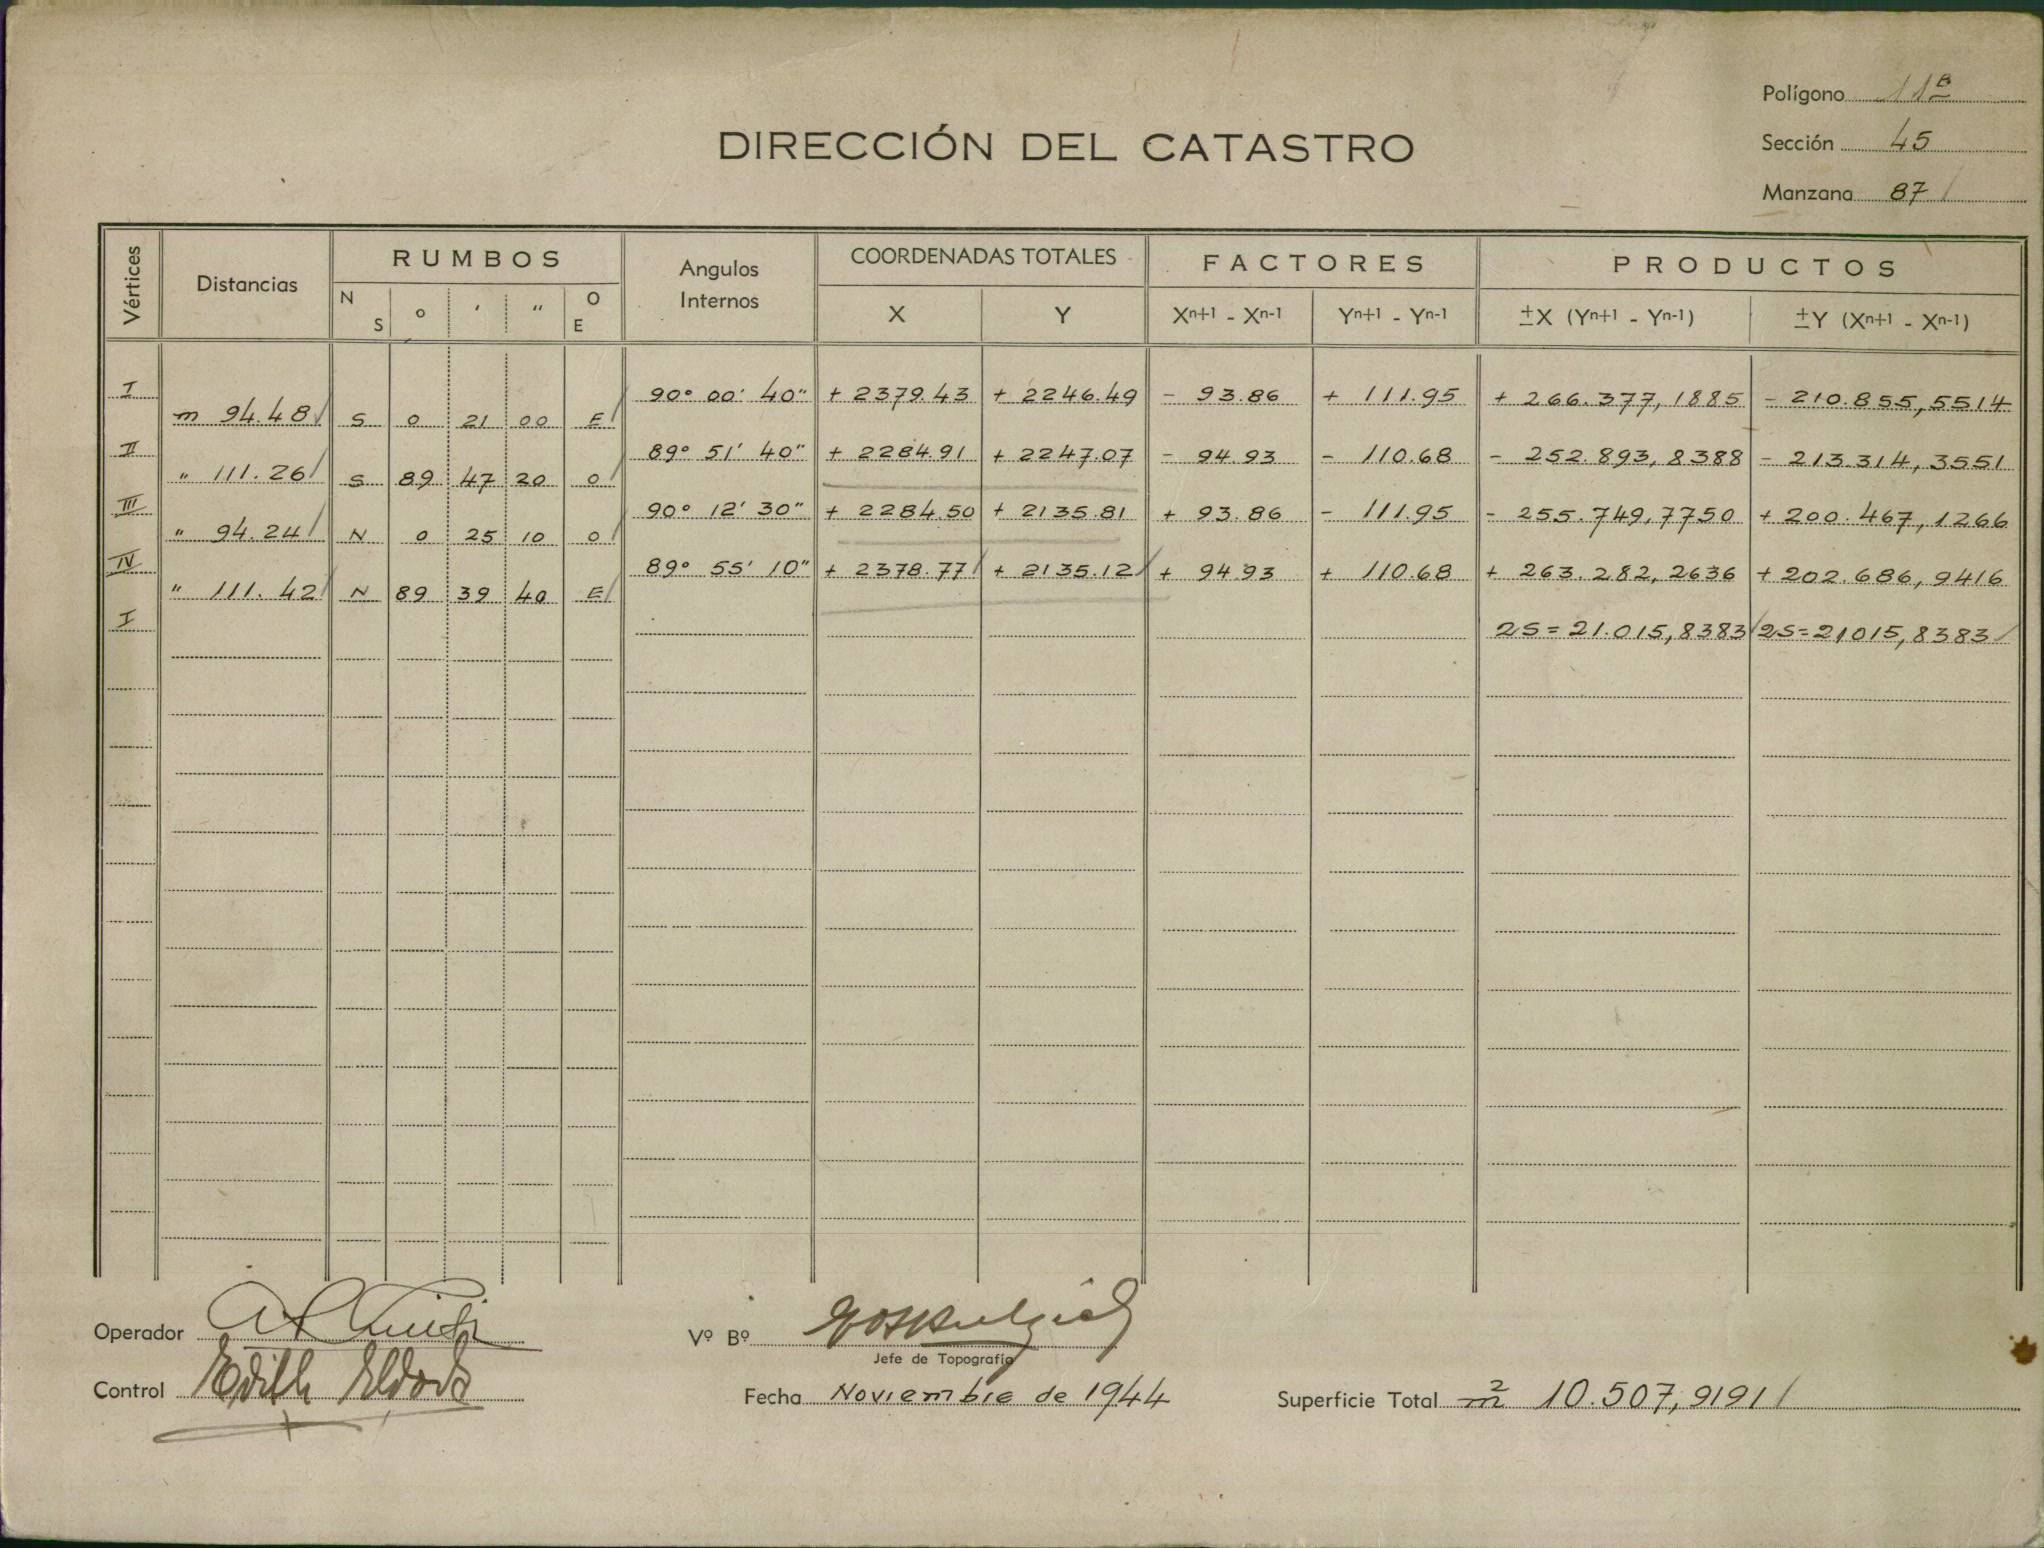 Polígono 11ª
DIRECCIÓN DEL CATASTRO
Sección 45
Manzana 87
Vértices Distancias RUMBOS Angulos Internos COORDENADAS TOTALES FACTORES PRODUCTOS
N S o ' " O E X Y Xn+1 - Xn-1 Yn+1 - Yn-1 ±X (Yn+1 - Yn-1) ±Y (Xn+1 - Xn-1)
I 90° 00' 40" + 2379.43 + 2246.49 - 93.86 + 111.95 + 266.377,1885 - 210.855,5514
m 94.48 S 0 21 00 E
II 89° 51' 40" + 2284.91 + 2247.07 - 94.93 - 110.68 - 252.893,8388 - 213.314,3551
" 111.26 S 89 47 20 O
III 90° 12' 30" + 2284.50 + 2135.81 + 93.86 - 111.95 - 255.749,7750 + 200.467,1266
" 94.24 N 0 25 10 O
IV 89° 55' 10" + 2378.77 + 2135.12 + 94.93 + 110.68 + 263.282,2636 + 202.686,9416
" 111.42 N 89 39 40 E
I 2S = 21.015,8383 2S = 21015,8383
Operador
Vº Bº
Jefe de Topografía
Control Edith
Fecha Noviembre de 1944
Superficie Total m2 10.507,9191